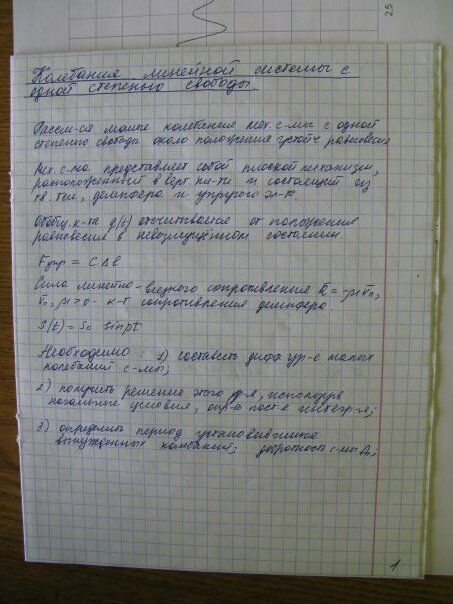 25
Колебания линейной системы с
одной степенью свободы.
Рассм-ся малые колебания мех. с-мы с одной
степенью свободы около положения устойч. равновесия
Мех. с-ма представляет собой плоский механизм,
расположенный в верт. пл-ти и состоящий из
тв. тел, демпфера и упругого эл-та.
Обобщ. к-та q(t) отсчитывается от положения
равновесия в невозмущённом состоянии.
Fупр = c Δℓ
Сила линейно-вязкого сопротивления R̄ = -μV̄п,
Vп, μ>0 - к-т сопротивления демпфера.
S(t) = S₀ sin pt
Необходимо: 1) составить дифф. ур-е малых
колебаний с-мы;
2) получить решение этого ур-я, используя
начальные условия, опр-ть пост-е интегр-я;
3) определить период установившихся
вынужденных колебаний; добротность с-мы Д;
1